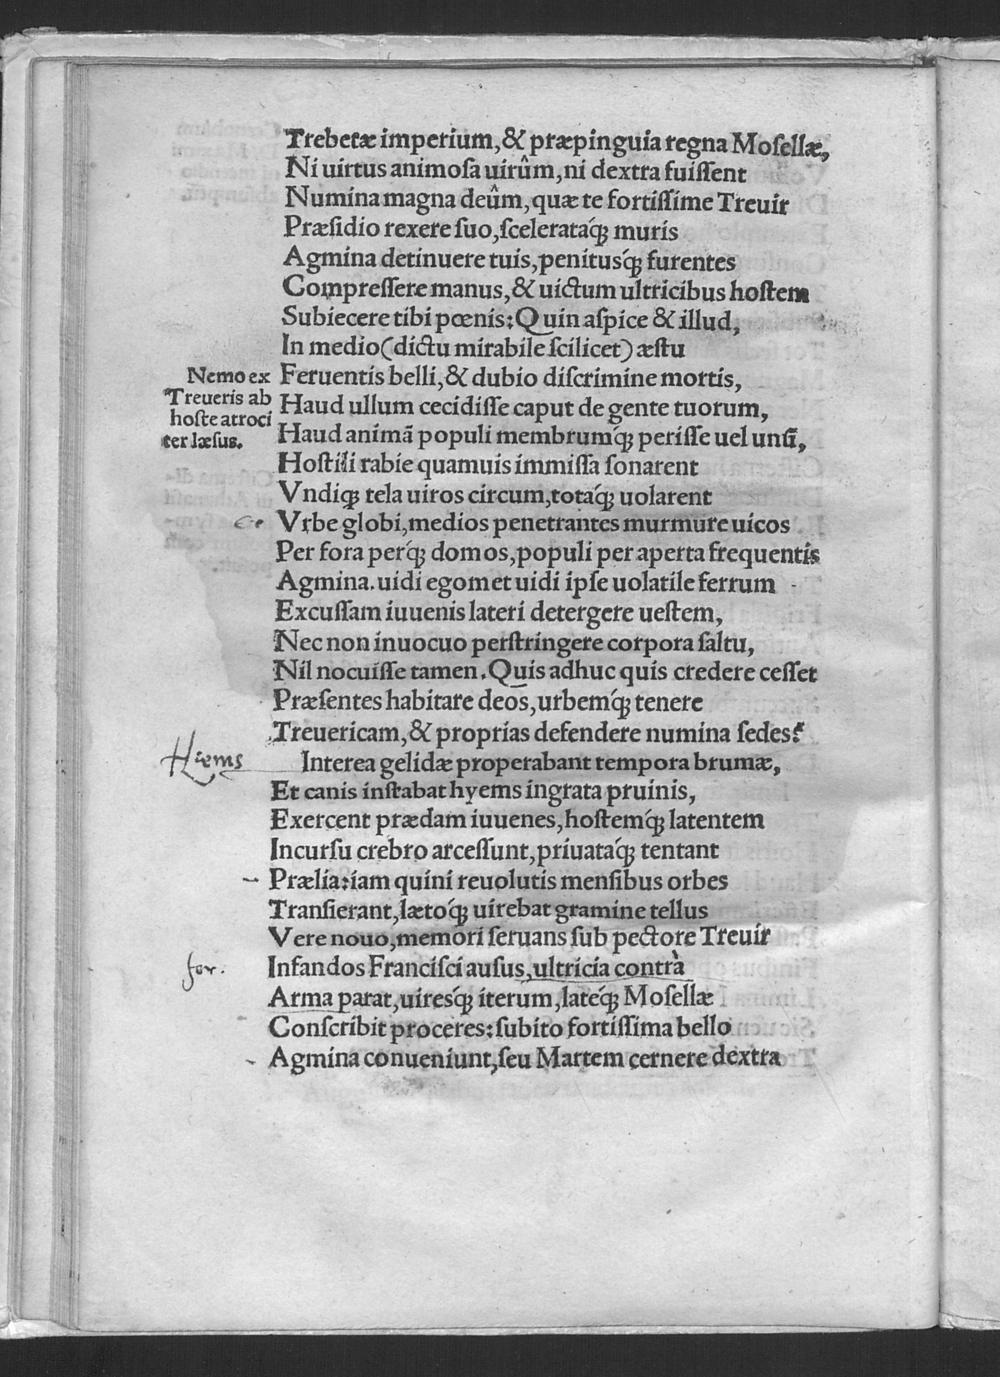 Trebetæ imperium, & præpinguia regna Mosellæ,
Ni uirtus animosa uirûm, ni dextra fuissent
Numina magna deûm, quæ te fortissime Treuir
Præsidio rexere suo, scelerataq́ꝫ muris
Agmina detinuere tuis, penitusq́ꝫ furentes
Compressere manus, & uictum ultricibus hostem
Subiecere tibi pœnis: Quin aspice & illud,
In medio (dictu mirabile scilicet) æstu
Nemo ex
Treueris ab
hoste atroci
ter læsus.
Feruentis belli, & dubio discrimine mortis,
Haud ullum cecidisse caput de gente tuorum,
Haud animā populi membrumq́ꝫ perisse uel unū,
Hostili rabie quamuis immissa sonarent
Vndiqꝫ tela uiros circum, totaq́ꝫ uolarent
Vrbe globi, medios penetrantes murmure uicos
Per fora perq́ꝫ domos, populi per aperta frequentis
Agmina. uidi egomet uidi ipse uolatile ferrum
Excussam iuuenis lateri detergere uestem,
Nec non inuocuo perstringere corpora saltu,
Nil nocuisse tamen. Quis adhuc quis credere cesset
Præsentes habitare deos, urbemq́ꝫ tenere
Treuericam, & proprias defendere numina sedes?
Hiems
Interea gelidæ properabant tempora brumæ,
Et canis instabat hyems ingrata pruinis,
Exercent prædam iuuenes, hostemq́ꝫ latentem
Incursu crebro arcessunt, priuataq́ꝫ tentant
Prælia: iam quini reuolutis mensibus orbes
Transierant, lætoq́ꝫ uirebat gramine tellus
Vere nouo, memori seruans sub pectore Treuir
for.
Infandos Francisci ausus, ultricia contrà
Arma parat, uiresq́ꝫ iterum, lateq́ꝫ Mosellæ
Conscribit proceres: subito fortissima bello
Agmina conueniunt, seu Martem cernere dextra